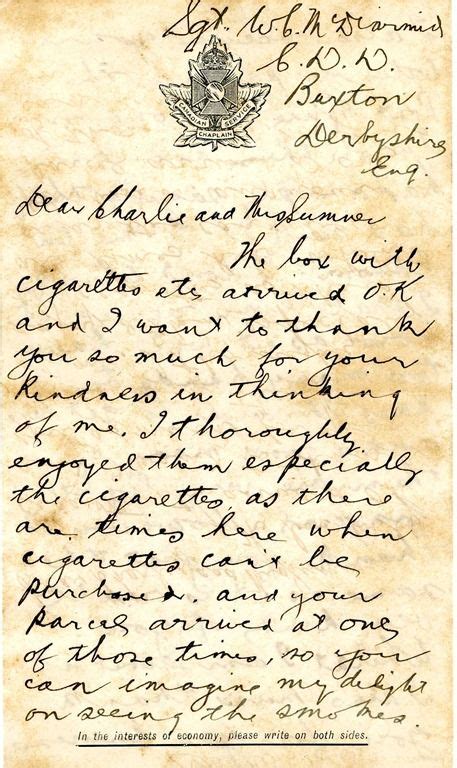 Sgt. W. C. McDiarmid
C. D. D.
Buxton
Derbyshire
Eng.
CANADIAN CHAPLAIN SERVICE
Dear Charlie and Mrs Sumner
The box with
cigarettes etc arrived O.K
and I want to thank
you so much for your
kindness in thinking
of me. I thoroughly
enjoyed them especially
the cigarettes, as there
are times here when
cigarettes can't be
purchased. and your
parcel arrived at one
of those times, so you
can imagine my delight
on seeing the smokes.
In the interests of economy, please write on both sides.